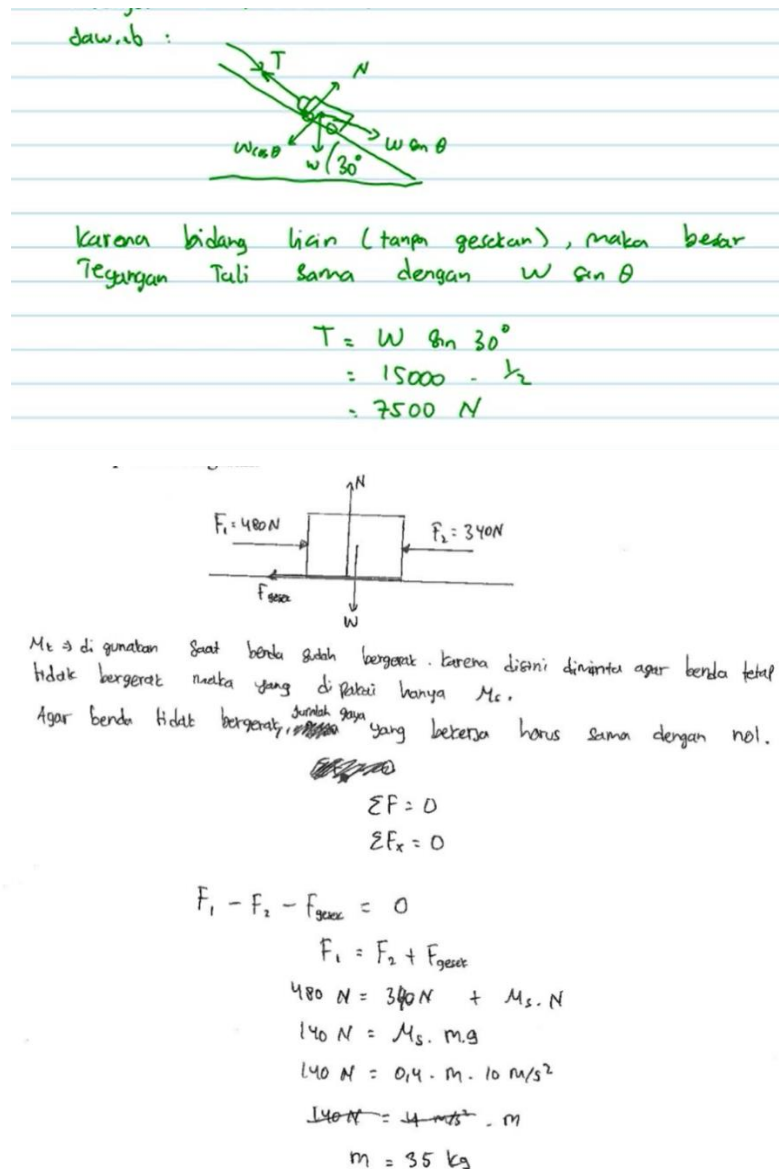 Jawab :
T
N
W cos θ
W
30°
W sin θ
Karena bidang licin (tanpa gesekan), maka besar
Tegangan Tali sama dengan W sin θ
T = W sin 30°
= 15000 . 1/2
= 7500 N
N
F₁ = 480N
F₂ = 340N
F gesek
W
Mk ⇒ di gunakan saat benda sudah bergerak. karena disini diminta agar benda tetap
tidak bergerak maka yang di pakai hanya Ms.
Agar benda tidak bergerak, jumlah gaya yang bekerja harus sama dengan nol.
ΣF = 0
ΣFx = 0
F₁ - F₂ - F gesek = 0
F₁ = F₂ + F gesek
480 N = 340 N + Ms . N
140 N = Ms . m.g
140 N = 0,4 . m . 10 m/s²
140 N = 4 m/s² . m
m = 35 kg